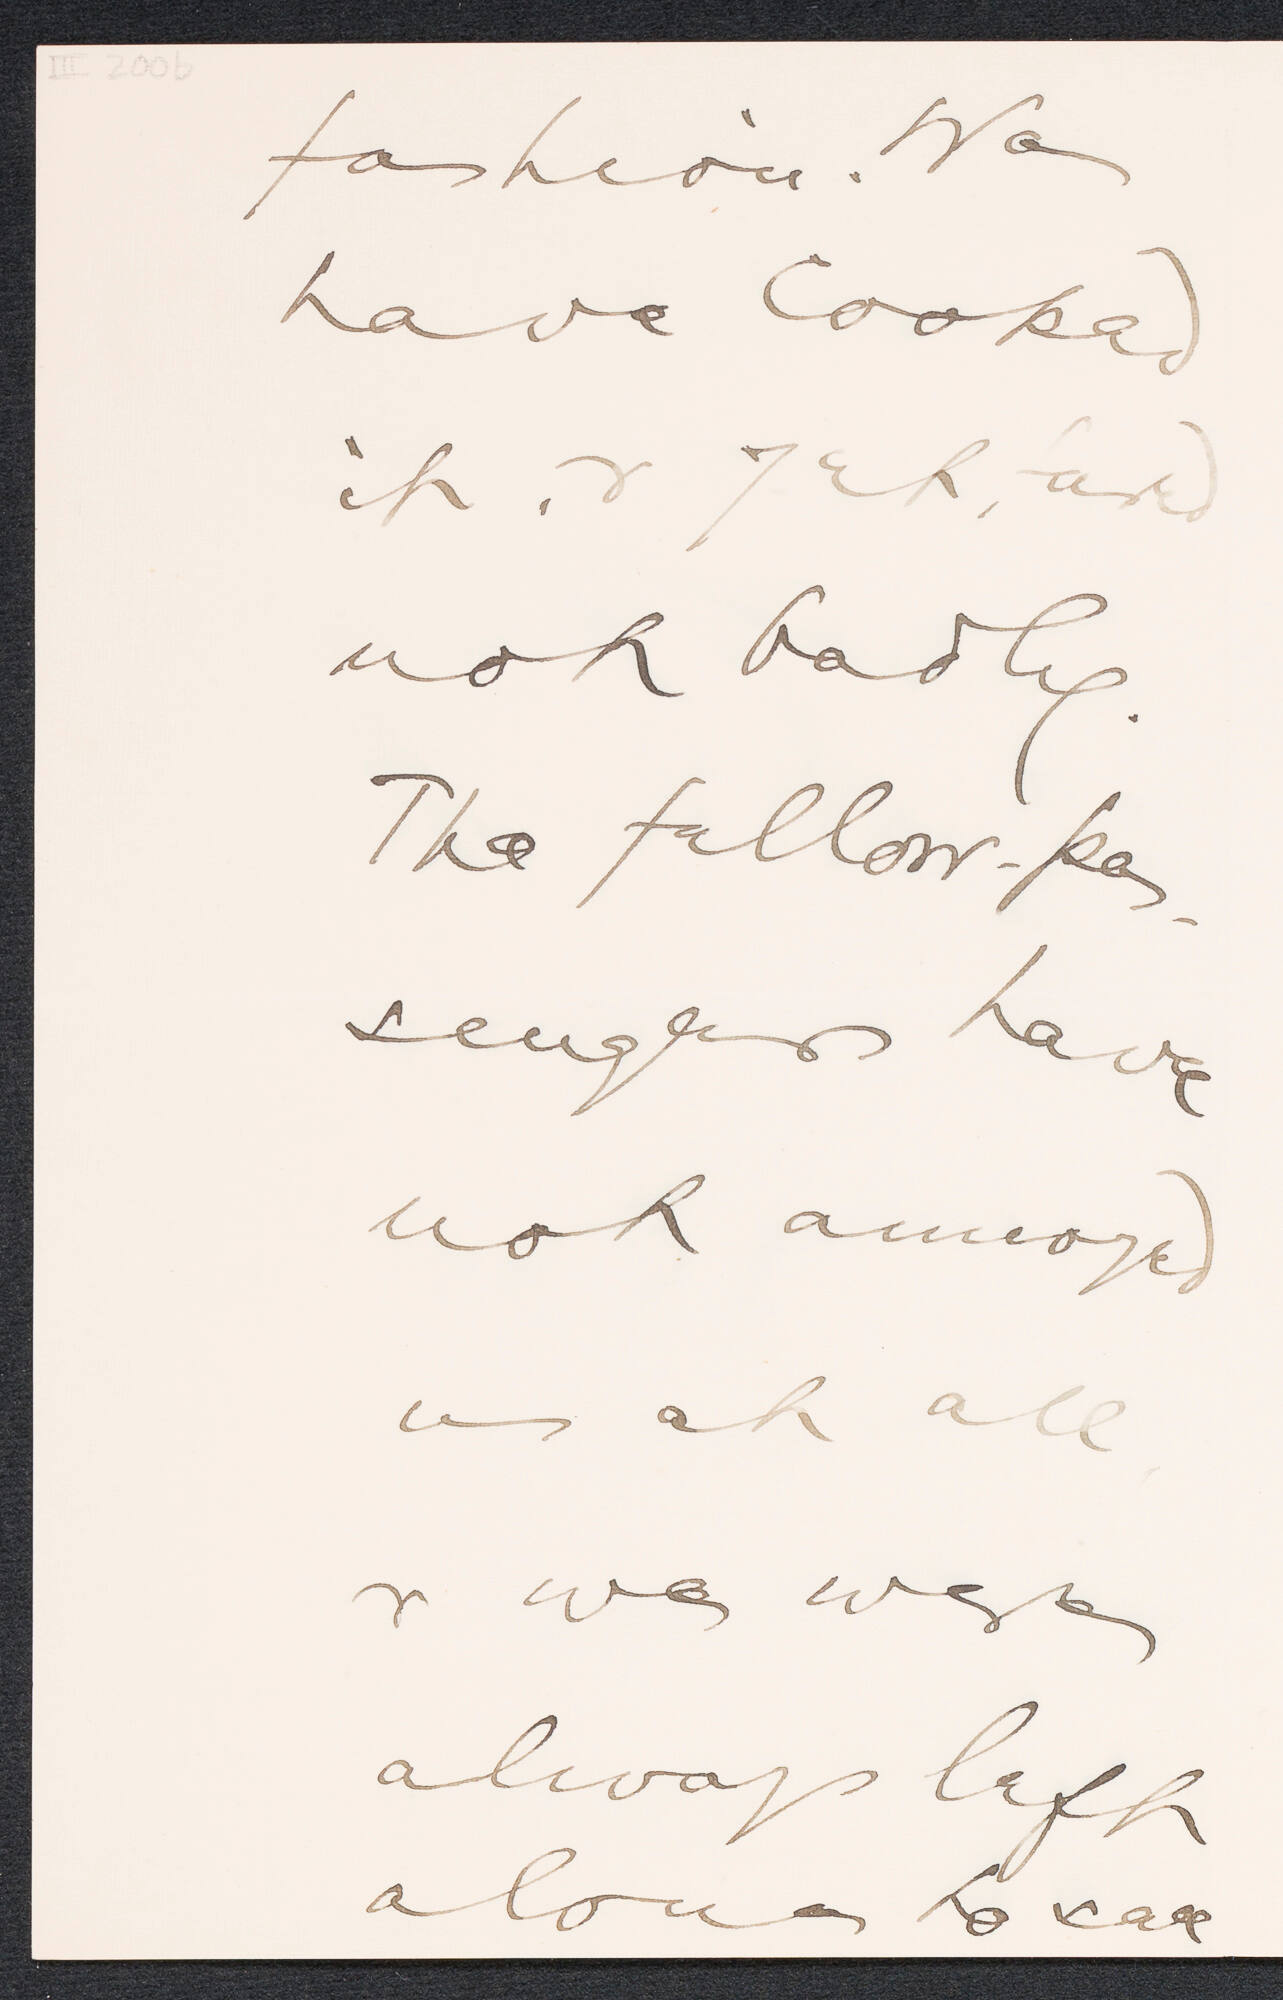 III 200b
fashion. We
have Cooked
it, & yet, fared
not badly.
The fellow-pas-
sengers have
not annoyed
us at all,
& we were
always left
alone to see